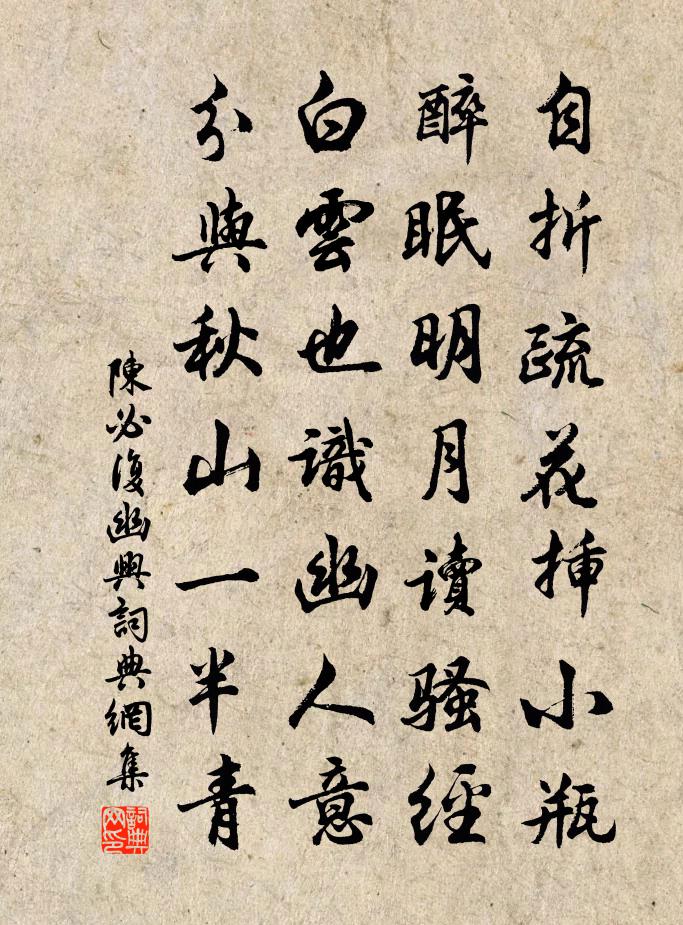 自折疏花揷小瓶
醉眠明月讀騷經
白雲也識幽人意
分與秋山一半青
陳必復幽興詞典網集
詞典网印